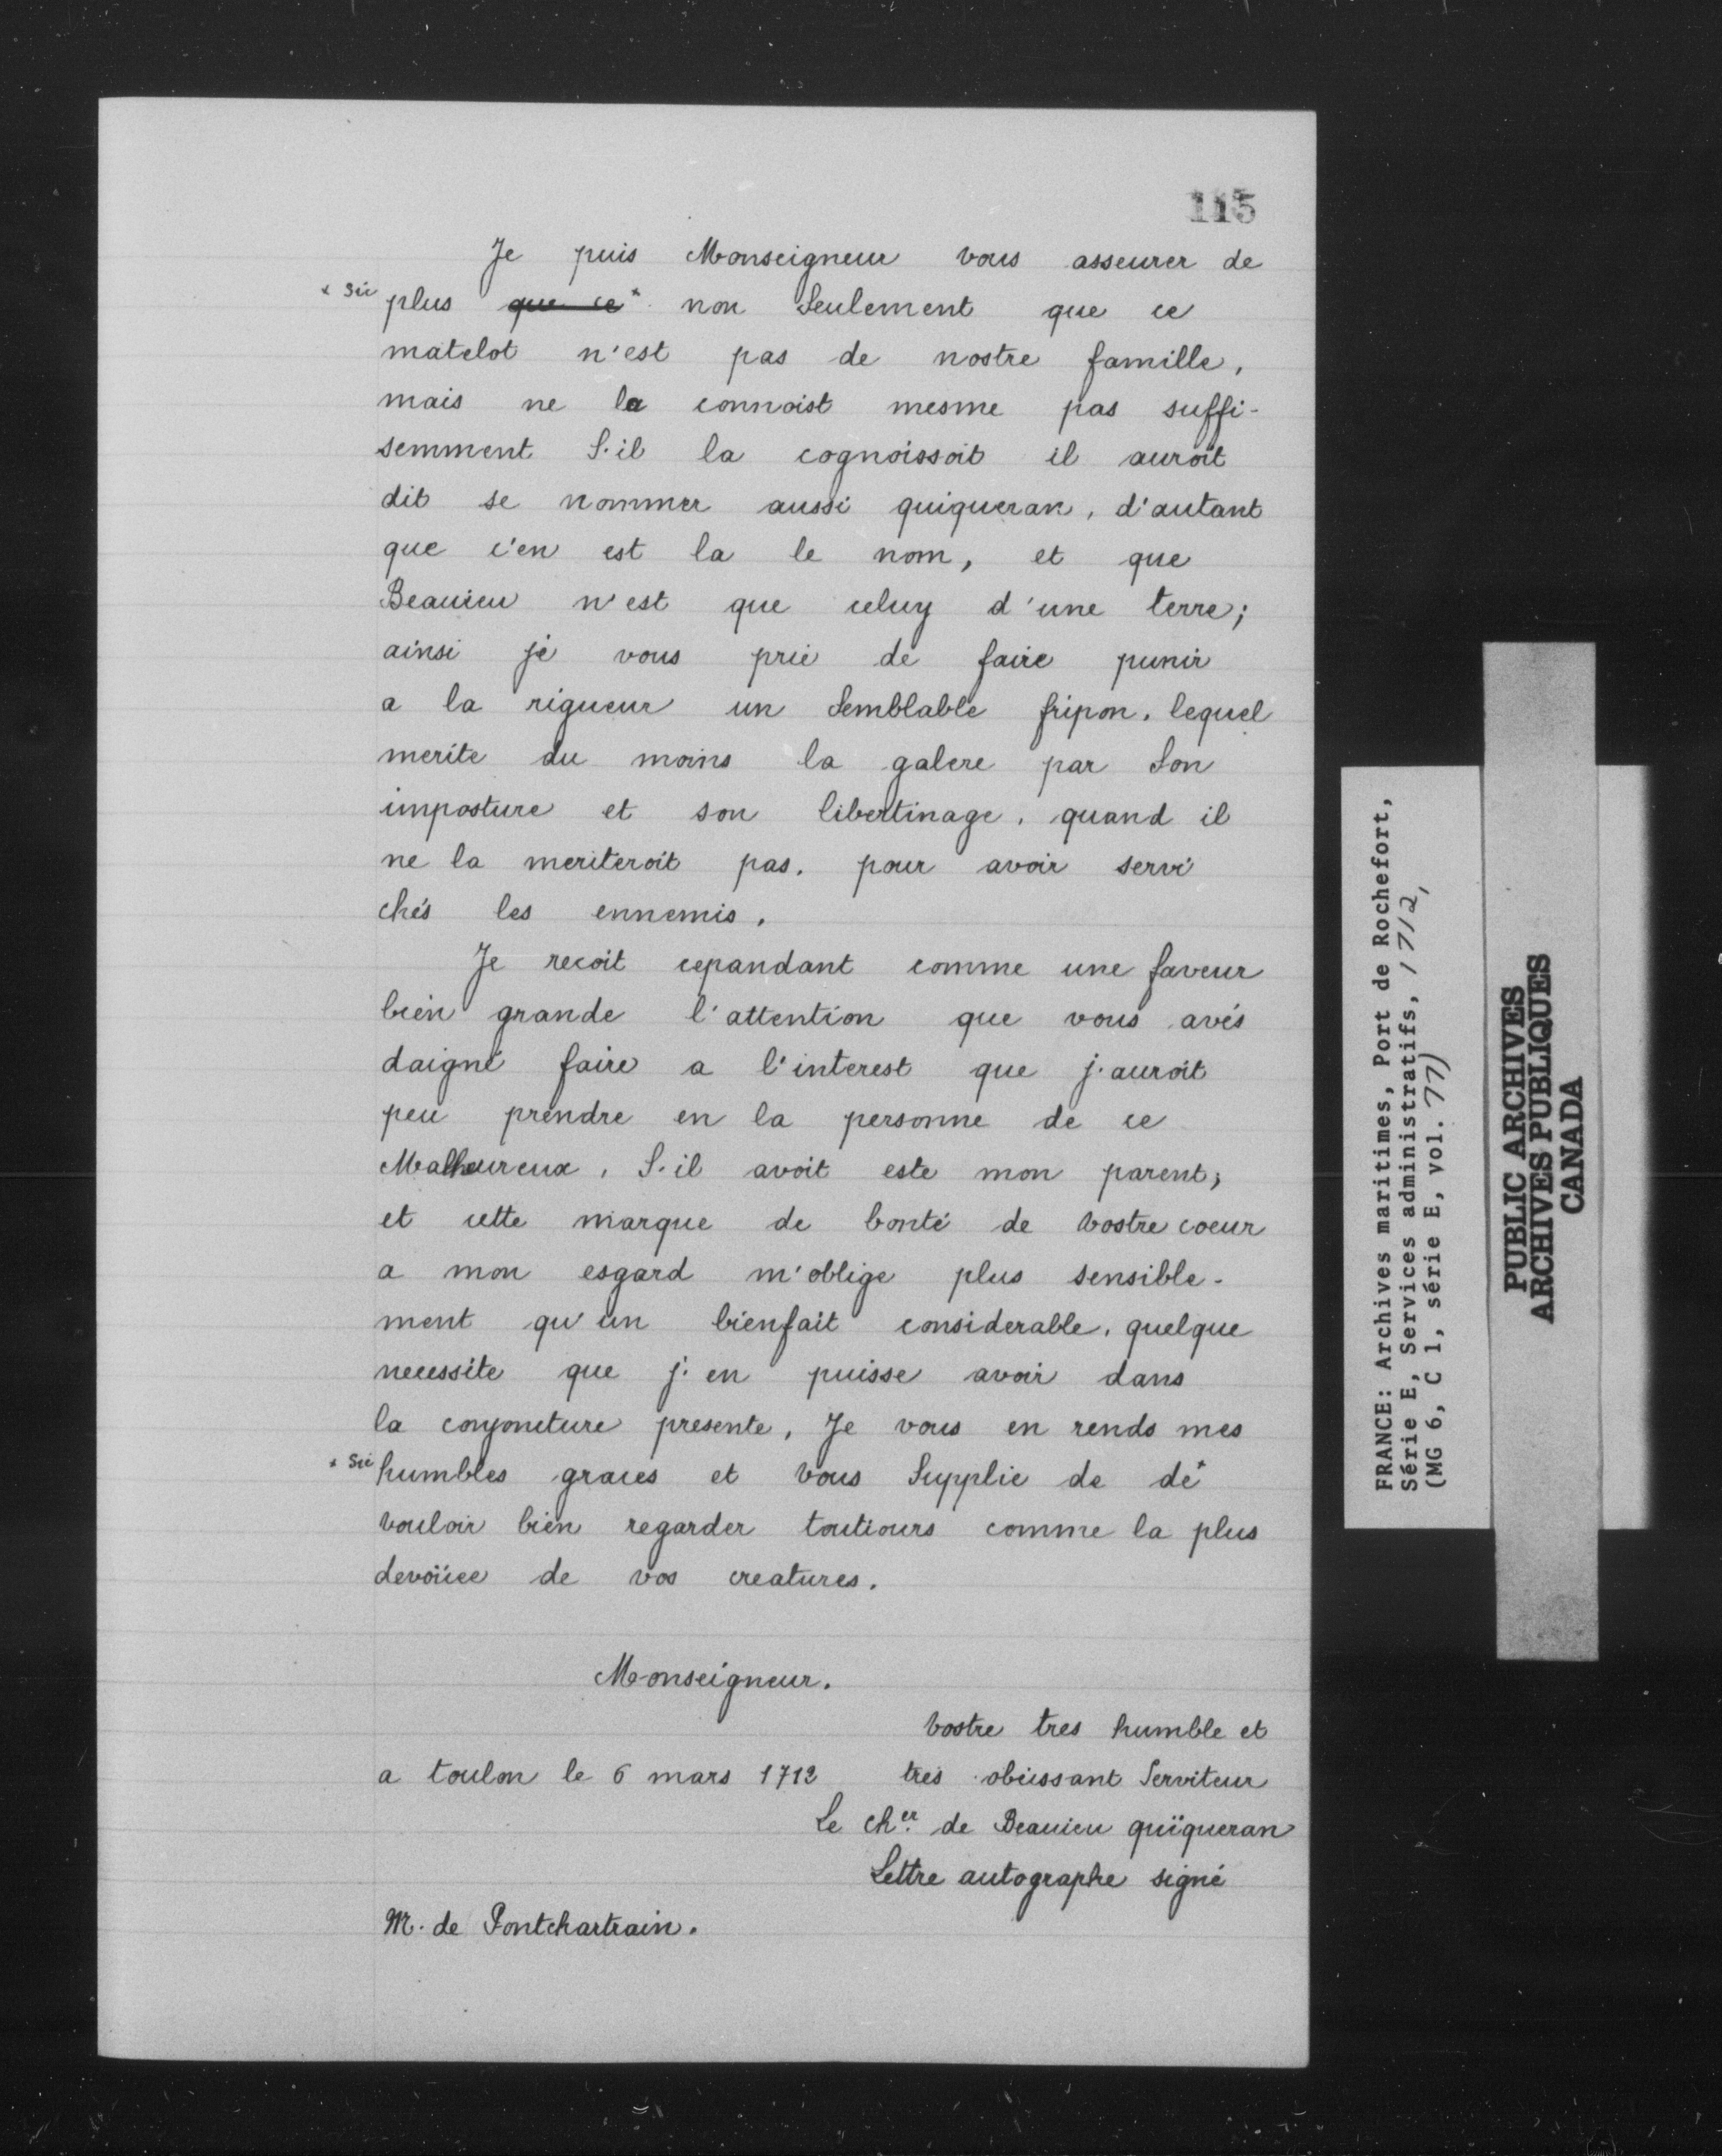 115
Je puis Monseigneur vous asseurer de
* Sic plus que ce* non Seulement que ce
matelot n'est pas de nostre famille,
mais ne la connoist mesme pas suffi-
semment S.il la cognoissoit il auroit
dit se nommer aussi quiqueran, d'autant
que c'en est la le nom, et que
Beauieu n'est que celuy d'une terre;
ainsi je vous prie de faire punir
a la rigueur un Semblable fripon, lequel
merite du moins la galere par Son
imposture et son libertinage, quand il
ne la meriteroit pas, pour avoir servi
chés les ennemis.
Je recoit cepandant comme une faveur
bien grande l'attention que vous avés
daigné faire a l'interest que j.auroit
peu prendre en la personne de ce
Malheureux, S.il avoit este mon parent;
et cette marque de bonté de vostre coeur
a mon esgard m'oblige plus sensible-
ment qu'un bienfait considerable, quelque
necessite que j.en puisse avoir dans
la conjoncture presente, Je vous en rends mes
* Sic humbles graces et vous Supplie de de*
vouloir bien regarder toutiours comme la plus
devoüee de vos creatures.
Monseigneur.
vostre tres humble et
a toulon le 6 mars 1712 tres obeissant Serviteur
Le cher. de Beauieu quïqueran
Lettre autographe signé
M. de Pontchartrain.
FRANCE: Archives maritimes, Port de Rochefort,
Série E, Services administratifs, 1712,
(MG 6, C 1, série E, vol. 77)
PUBLIC ARCHIVES
ARCHIVES PUBLIQUES
CANADA